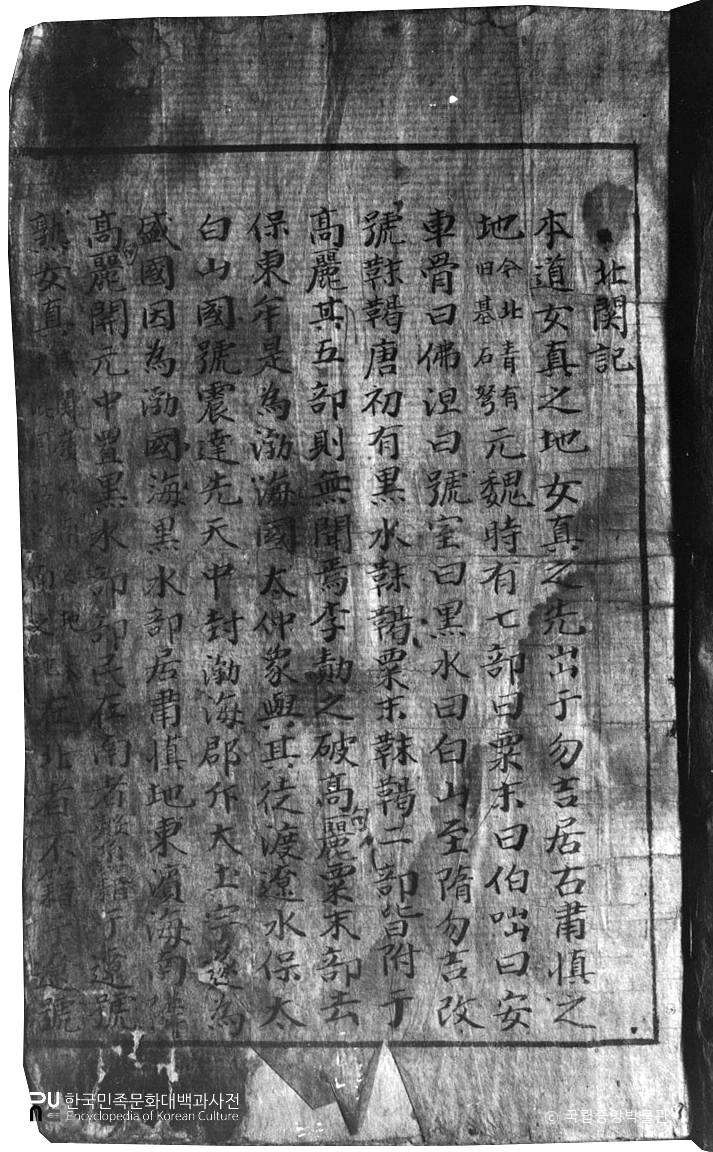 北関記
本道女真之地女真之先出于勿吉居古肅慎之
地今北青有旧基石弩元魏時有七部曰粟末曰伯咄曰安
車骨曰佛涅曰號室曰黑水曰白山至隋勿吉改
號靺鞨唐初有黑水靺鞨粟末靺鞨二部皆附于
高麗其五部則無聞焉李勣之破高麗粟末部去
保東牟是為渤海國太仲象與其徒渡遼水保太
白山國號震達先天中封渤海郡作大土宇遂為
盛國因為渤國海黑水部居肅慎地東濱海南憐
高麗開元中置黑水部部民在南者籍于遼號
熟女真在北者不籍于遼號
PU 한국민족문화대백과사전
Encyclopedia of Korean Culture
© 국립중앙박물관